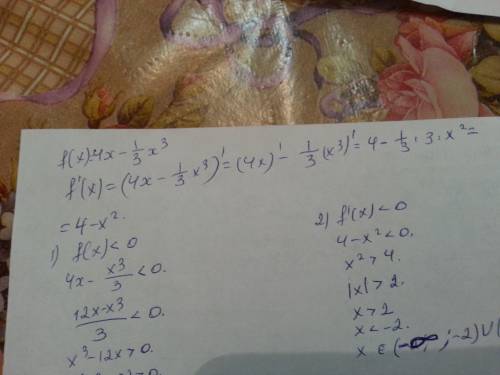 f(x)=4x-1/3 x³
f'(x) = (4x - 1/3 x³)' = (4x)' - 1/3 (x³)' = 4 - 1/3 · 3 · x² =
= 4-x².
1) f(x)<0
4x - x³/3 <0.
12x-x³/3 <0.
x³-12x>0.
2) f'(x)<0
4-x²<0.
x²>4.
|x|>2.
x>2
x<-2.
x ∈ (-∞; -2)∪(